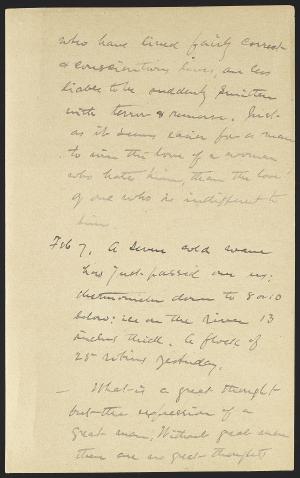 who have lived fairly correct
& conscientious lives, are less
liable to be suddenly smitten
with terror & remorse. Just
as it seems easier for a man
to win the love of a woman
who hates him, than the love
of one who is indifferent to
him.
Feb 7. A severe cold wave
has just passed over us;
thermometer down to 8 or 10
below; ice on the river 13
inches thick. A flock of
25 robins yesterday.
— What is a great thought
but the expression of a
great man. Without great men
there are no great thoughts